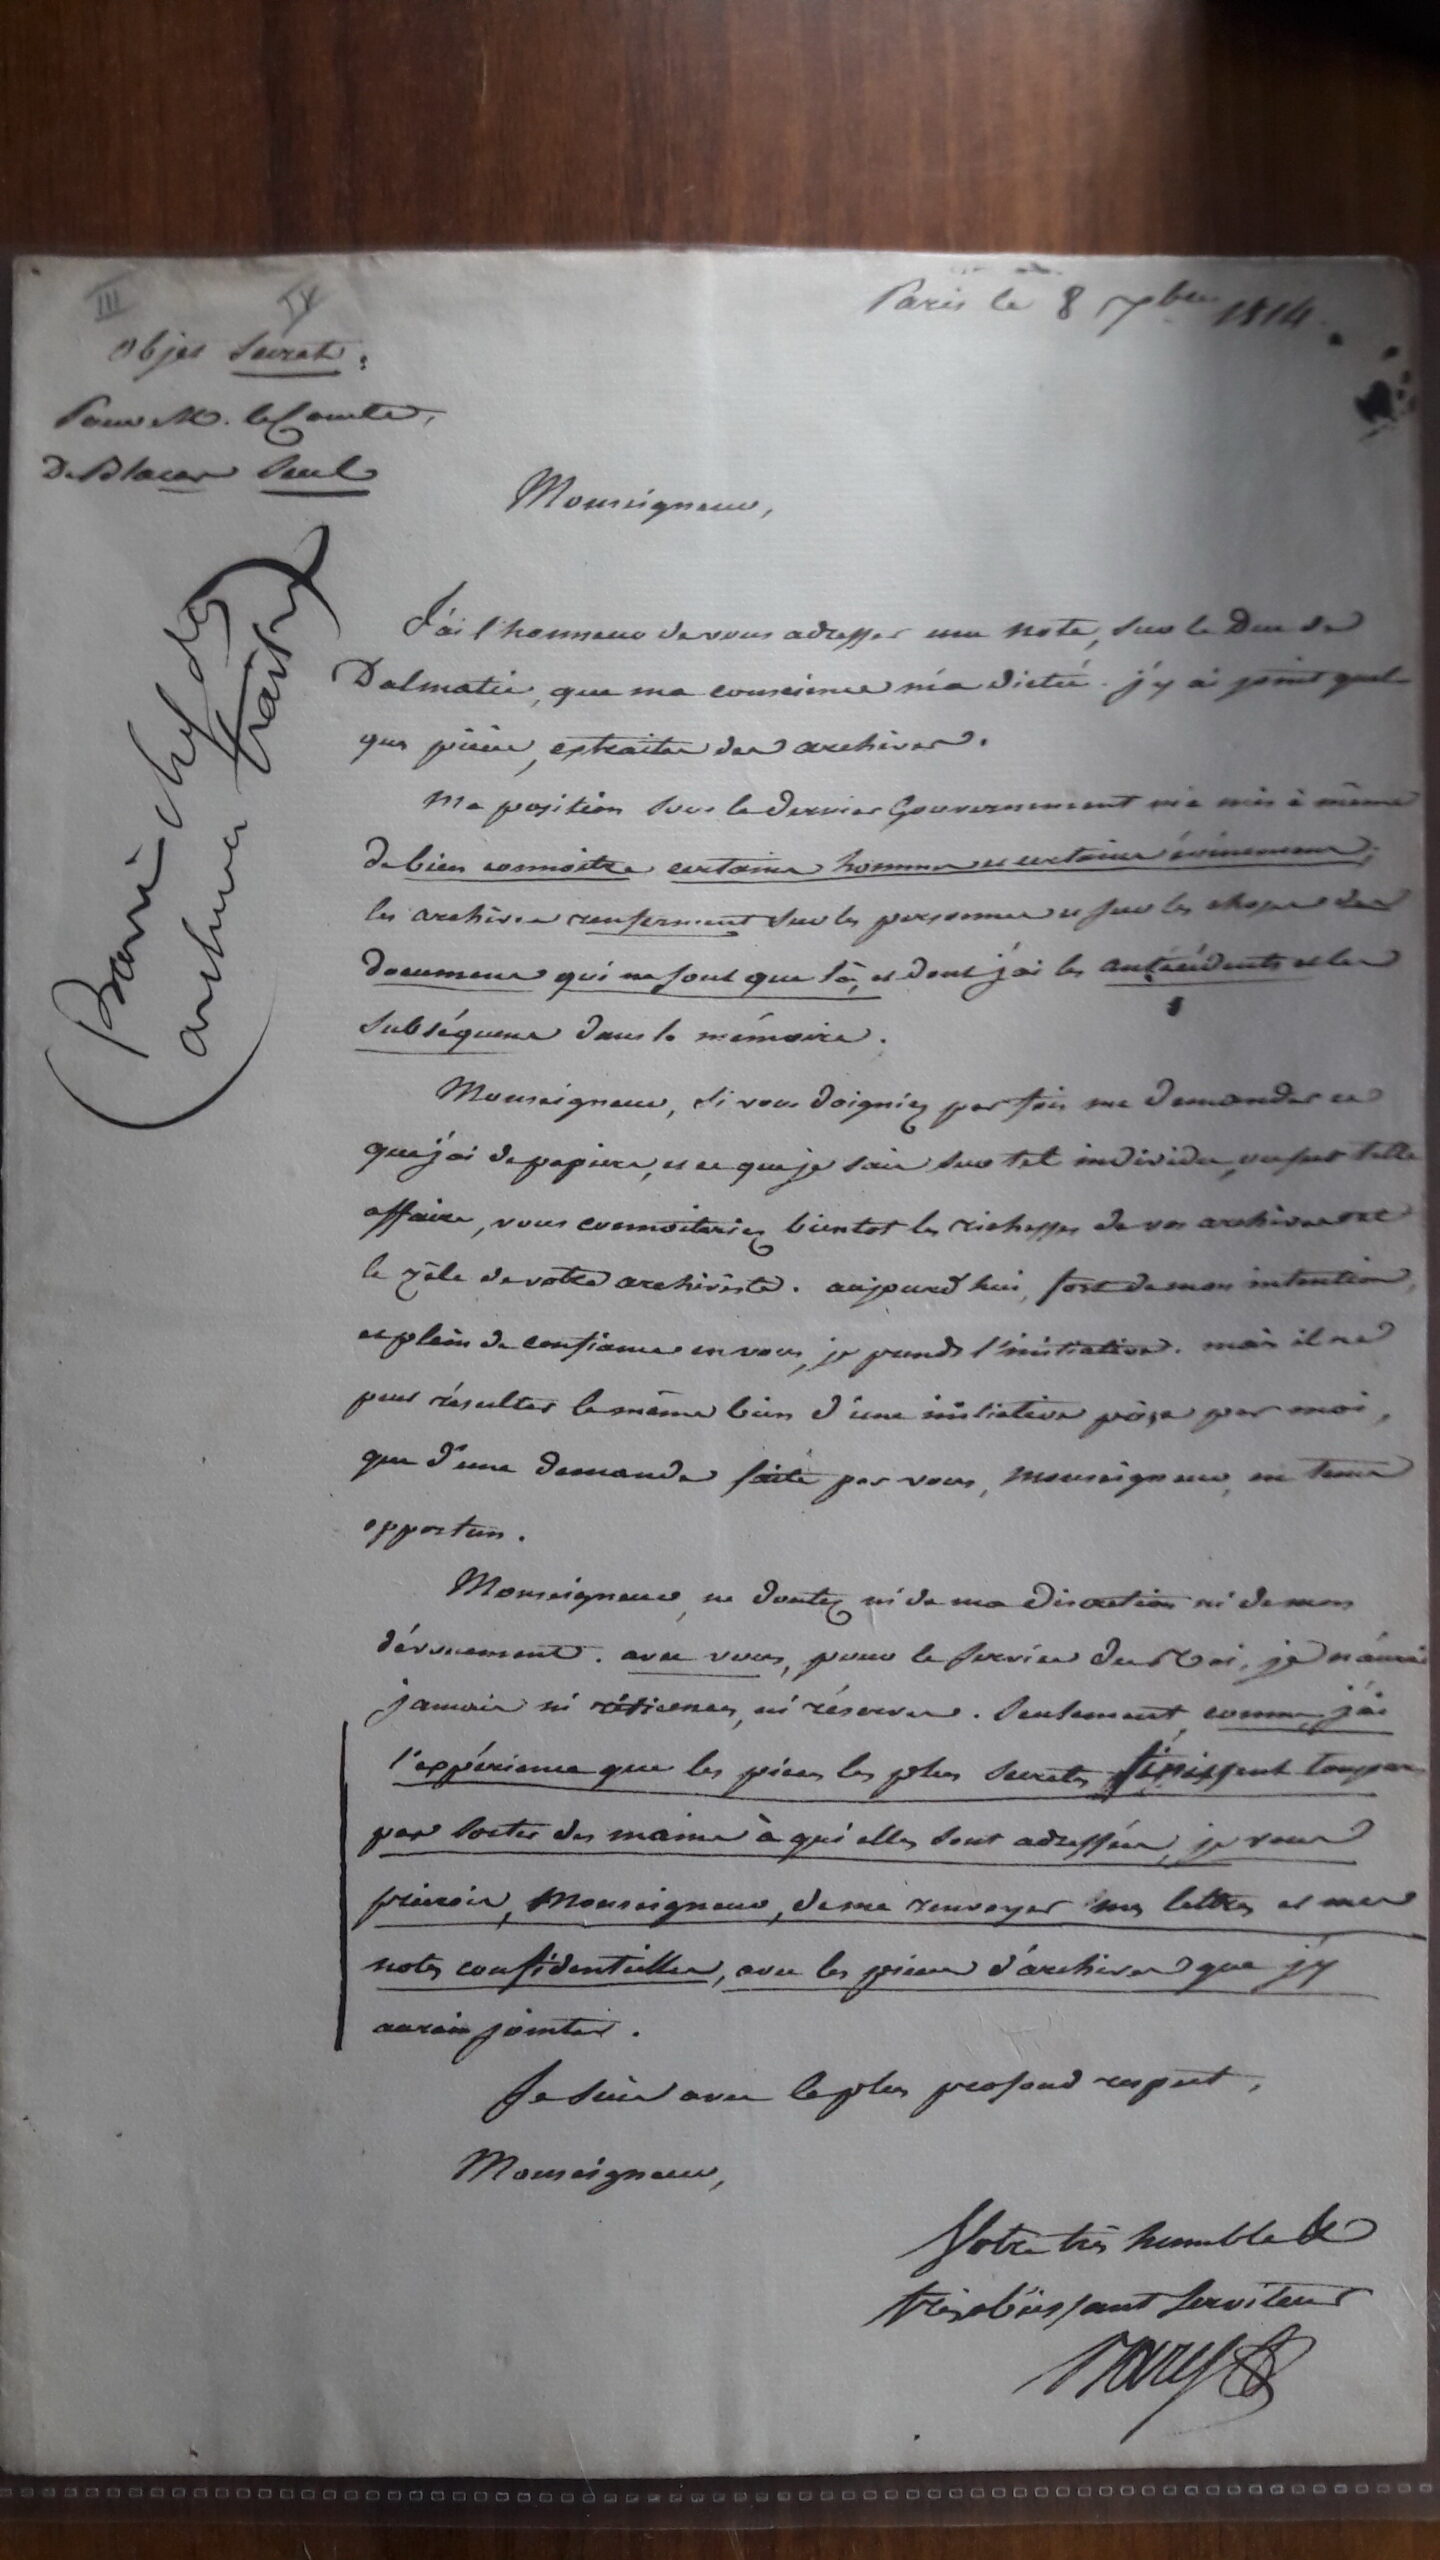 III IV
Paris le 8 7bre 1814.
objet Secret.
Pour M. le Comte,
De Blacas Seul
Monseigneur,
J'ai l'honneur de vous adresser une note, sur le Duc de
Dalmatie, que ma conscience m'a dictée. j'y ai joint quel-
ques pièces, extraites des archives.
Ma position sous le dernier Gouvernement m'a mis à même
de bien connoître certains hommes et certains évènemens;
les archives renferment sur les personnes et sur les choses des
documens qui ne sont que là, et dont j'ai les antécédents et les
subséquens dans la mémoire.
Monseigneur, si vous daigniez par fois me demander ce
que j'ai de papiers, et ce que je sais sur tel individu, ou sur telle
affaire, vous connoitriez bientot les richesses de vos archives et
le zèle de votre archiviste. aujourd'hui, fort de mon intention,
et plein de confiance en vous, je prends l'initiative. mais il ne
peut résulter le même bien d'une initiative prise par moi,
que d'une demande faite par vous, Monseigneur, en tems
opportun.
Monseigneur, ne doutez ni de ma discrétion ni de mon
dévouement. avec vous, pour le service du Roi, je n'aurai
jamais ni réticences, ni réserves. Seulement, comme j'ai
l'expérience que les pièces les plus secrètes finissent toujours
par sortir des mains à qui elles sont adressées, je vous
prierois, Monseigneur, de me renvoyer mes lettres et mes
notes confidentielles, avec les pièces d'archives que j'y
aurois jointes.
Je suis avec le plus profond respect,
Monseigneur,
Votre très humble &
très obéissant Serviteur
Bary
Barri chef des
archives